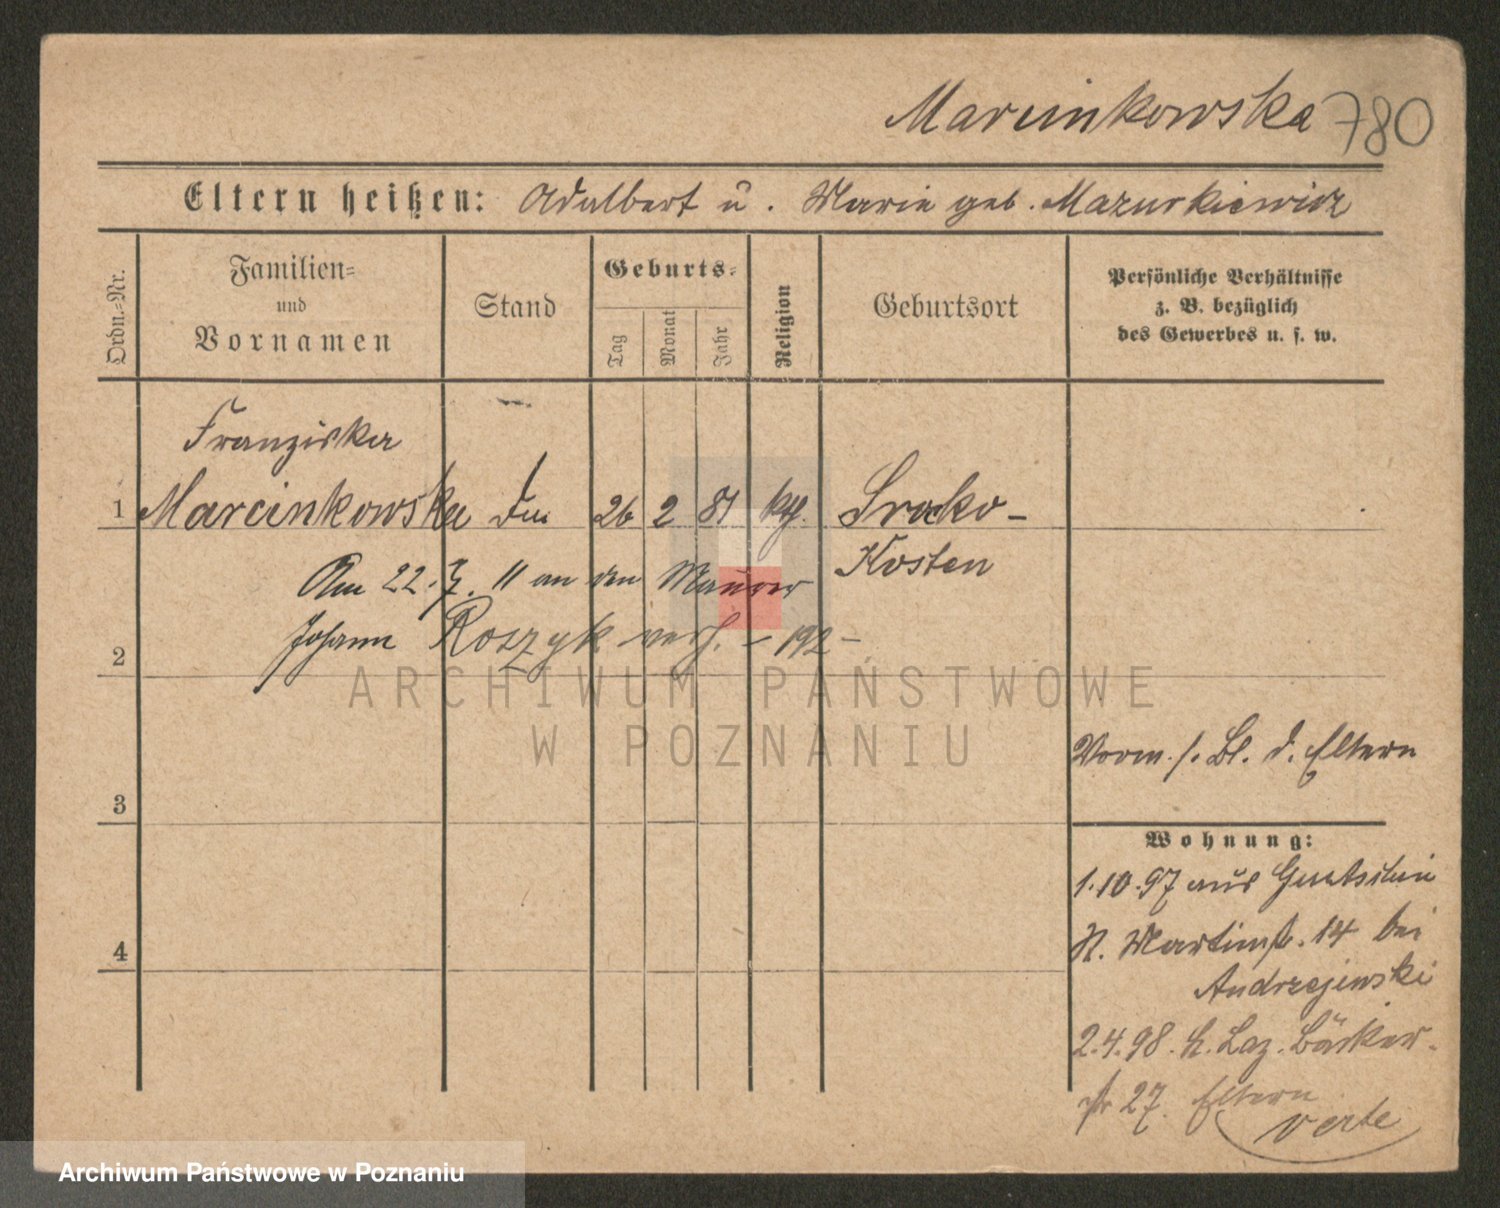 Marcinkowska 780
Eltern heißen: Adalbert u. Marie geb. Mazurkiewicz
Ordn.=Nr.
Familien=
und
Vornamen
Stand
Geburts=
Tag
Monat
Jahr
Religion
Geburtsort
Persönliche Verhältnisse
z. B. bezüglich
des Gewerbes u. s. w.
Franziska
1 Marcinkowska 26 2 81 kth. Sroko-
Kosten
Am 22.7. 11 an den Maurer
Johann Roszyk verh. – 192 –
2
ARCHIWUM PAŃSTWOWE
W POZNANIU
Vorm. s. Bl. d. Eltern
3
Wohnung:
1.10.97 aus
St. Martinstr. 14 bei
Andrzejewski
4
2.4.98. St. Laz. Bäcker-
str 27. Eltern
verte
Archiwum Państwowe w Poznaniu